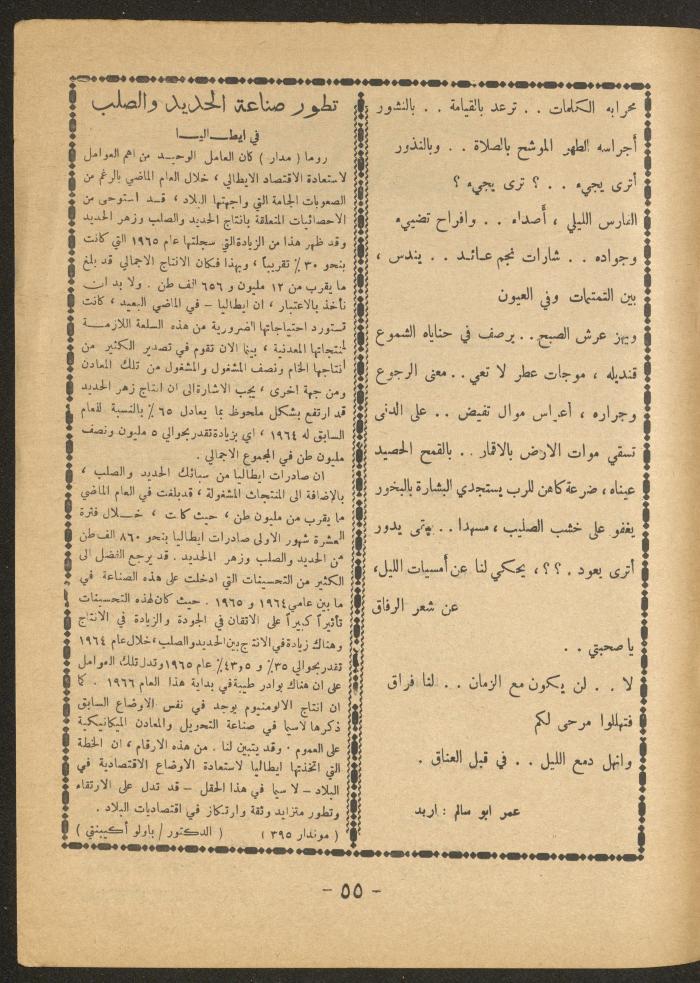 محرابه الكلمات . . ترعد بالقيامة . . بالنشور
أجراسه الطهر الموشح بالصلاة . . وبالنذور
أترى يجيء . . ؟ ترى يجيء ؟
الفارس الليلي ، أصداء . . وافراح تضيء
وجواده . . شارات نجم عائد . . يندس ،
بين التمتمات وفي العيون
ويهز عرش الصبح . . يرصف في حناياه الشموع
قنديله ، موجات عطر لا تعي . . معنى الرجوع
وجراره ، أعراس موال تفيض . . على الدنى
تسقي موات الارض بالاقمار . . بالقمح الحصيد
عيناه ، ضرعة كاهن للرب يستجدي البشارة بالبخور
يغفو على خشب الصليب ، مسهدا . . يدور
أترى يعود . ؟ ؟ ، يحكي لنا عن أمسيات الليل ،
عن شعر الرفاق
يا صحبتي . .
لا . . لن يكون مع الزمان . . لنا فراق
فتهللوا مرحى لكم
وانهل دمع الليل . . في قبل العناق .
عمر ابو سالم : اربد
تطور صناعة الحديد والصلب
في ايطاليا
روما ( مدار ) كان العامل الوحيد من اهم العوامل
لاستعادة الاقتصاد الايطالي ، خلال العام الماضي بالرغم من
الصعوبات الجامة التي واجهتها البلاد ، قد استوحى من
الاحصائيات المتعلقة بانتاج الحديد والصلب وزهر الحديد
وقد ظهر هذا من الزيادة التي سجلتها عام ١٩٦٥ التي كانت
بنحو ٣٠ ٪ تقريباً ، وبهذا فكان الانتاج الاجمالي قد بلغ
ما يقرب من ١٢ مليون و ٦٥٦ الف طن . ولا بد ان
نأخذ بالاعتبار ، ان ايطاليا - في الماضي البعيد ، كانت
تستورد احتياجاتها الضرورية من هذه السلعة اللازمة
لمنتجاتها المعدنية ، بينما الان تقوم في تصدير الكثير من
انتاجها الخام ونصف المشغول والمشغول من تلك المعادن
ومن جهة اخرى ، يجب الاشارة الى ان انتاج زهر الحديد
قد ارتفع بشكل ملحوظ بما يعادل ٦٥ ٪ بالنسبة للعام
السابق له ١٩٦٤ ، اي بزيادة تقدر بحوالي ٥ مليون ونصف
مليون طن في المجموع الاجمالي .
ان صادرات ايطاليا من سبائك الحديد والصلب ،
بالإضافة الى المنتجات المشغولة ، قد بلغت في العام الماضي
ما يقرب من مليون طن ، حيث كانت ، خلال فترة
العشرة شهور الاولى صادرات ايطاليا بنحو ٨٦٠ الف طن
من الحديد والصلب وزهر الحديد . قد يرجع الفضل الى
الكثير من التحسينات التي ادخلت على هذه الصناعة في
ما بين عامي ١٩٦٤ و ١٩٦٥ . حيث كان لهذه التحسينات
تأثيراً كبيراً على الاتقان في الجودة والزيادة في الانتاج
وهناك زيادة في الانتاج بين الحديد والصلب ، خلال عام ١٩٦٤
تقدر بحوالي ٣٥٪ و ٤٣٫٥٪ عام ١٩٦٥ وتدل تلك العوامل
على ان هناك بوادر طيبة في بداية هذا العام ١٩٦٦ . كما
ان انتاج الالومنيوم يوجد في نفس الاوضاع السابق
ذكرها لاسيما في صناعة التحويل والمعادن الميكانيكية
على العموم . وقد يتبين لنا . من هذه الارقام ، ان الخطة
التي اتخذتها ايطاليا لاستعادة الاوضاع الاقتصادية في
البلاد - لا سيما في هذا الحقل - قد تدل على الارتقاء
وتطور متزايد وثقة وارتكاز في اقتصاديات البلاد .
( موندار ٣٩٥ ) ( الدكتور / باولو أكيبنتي )
- ٥٥ -